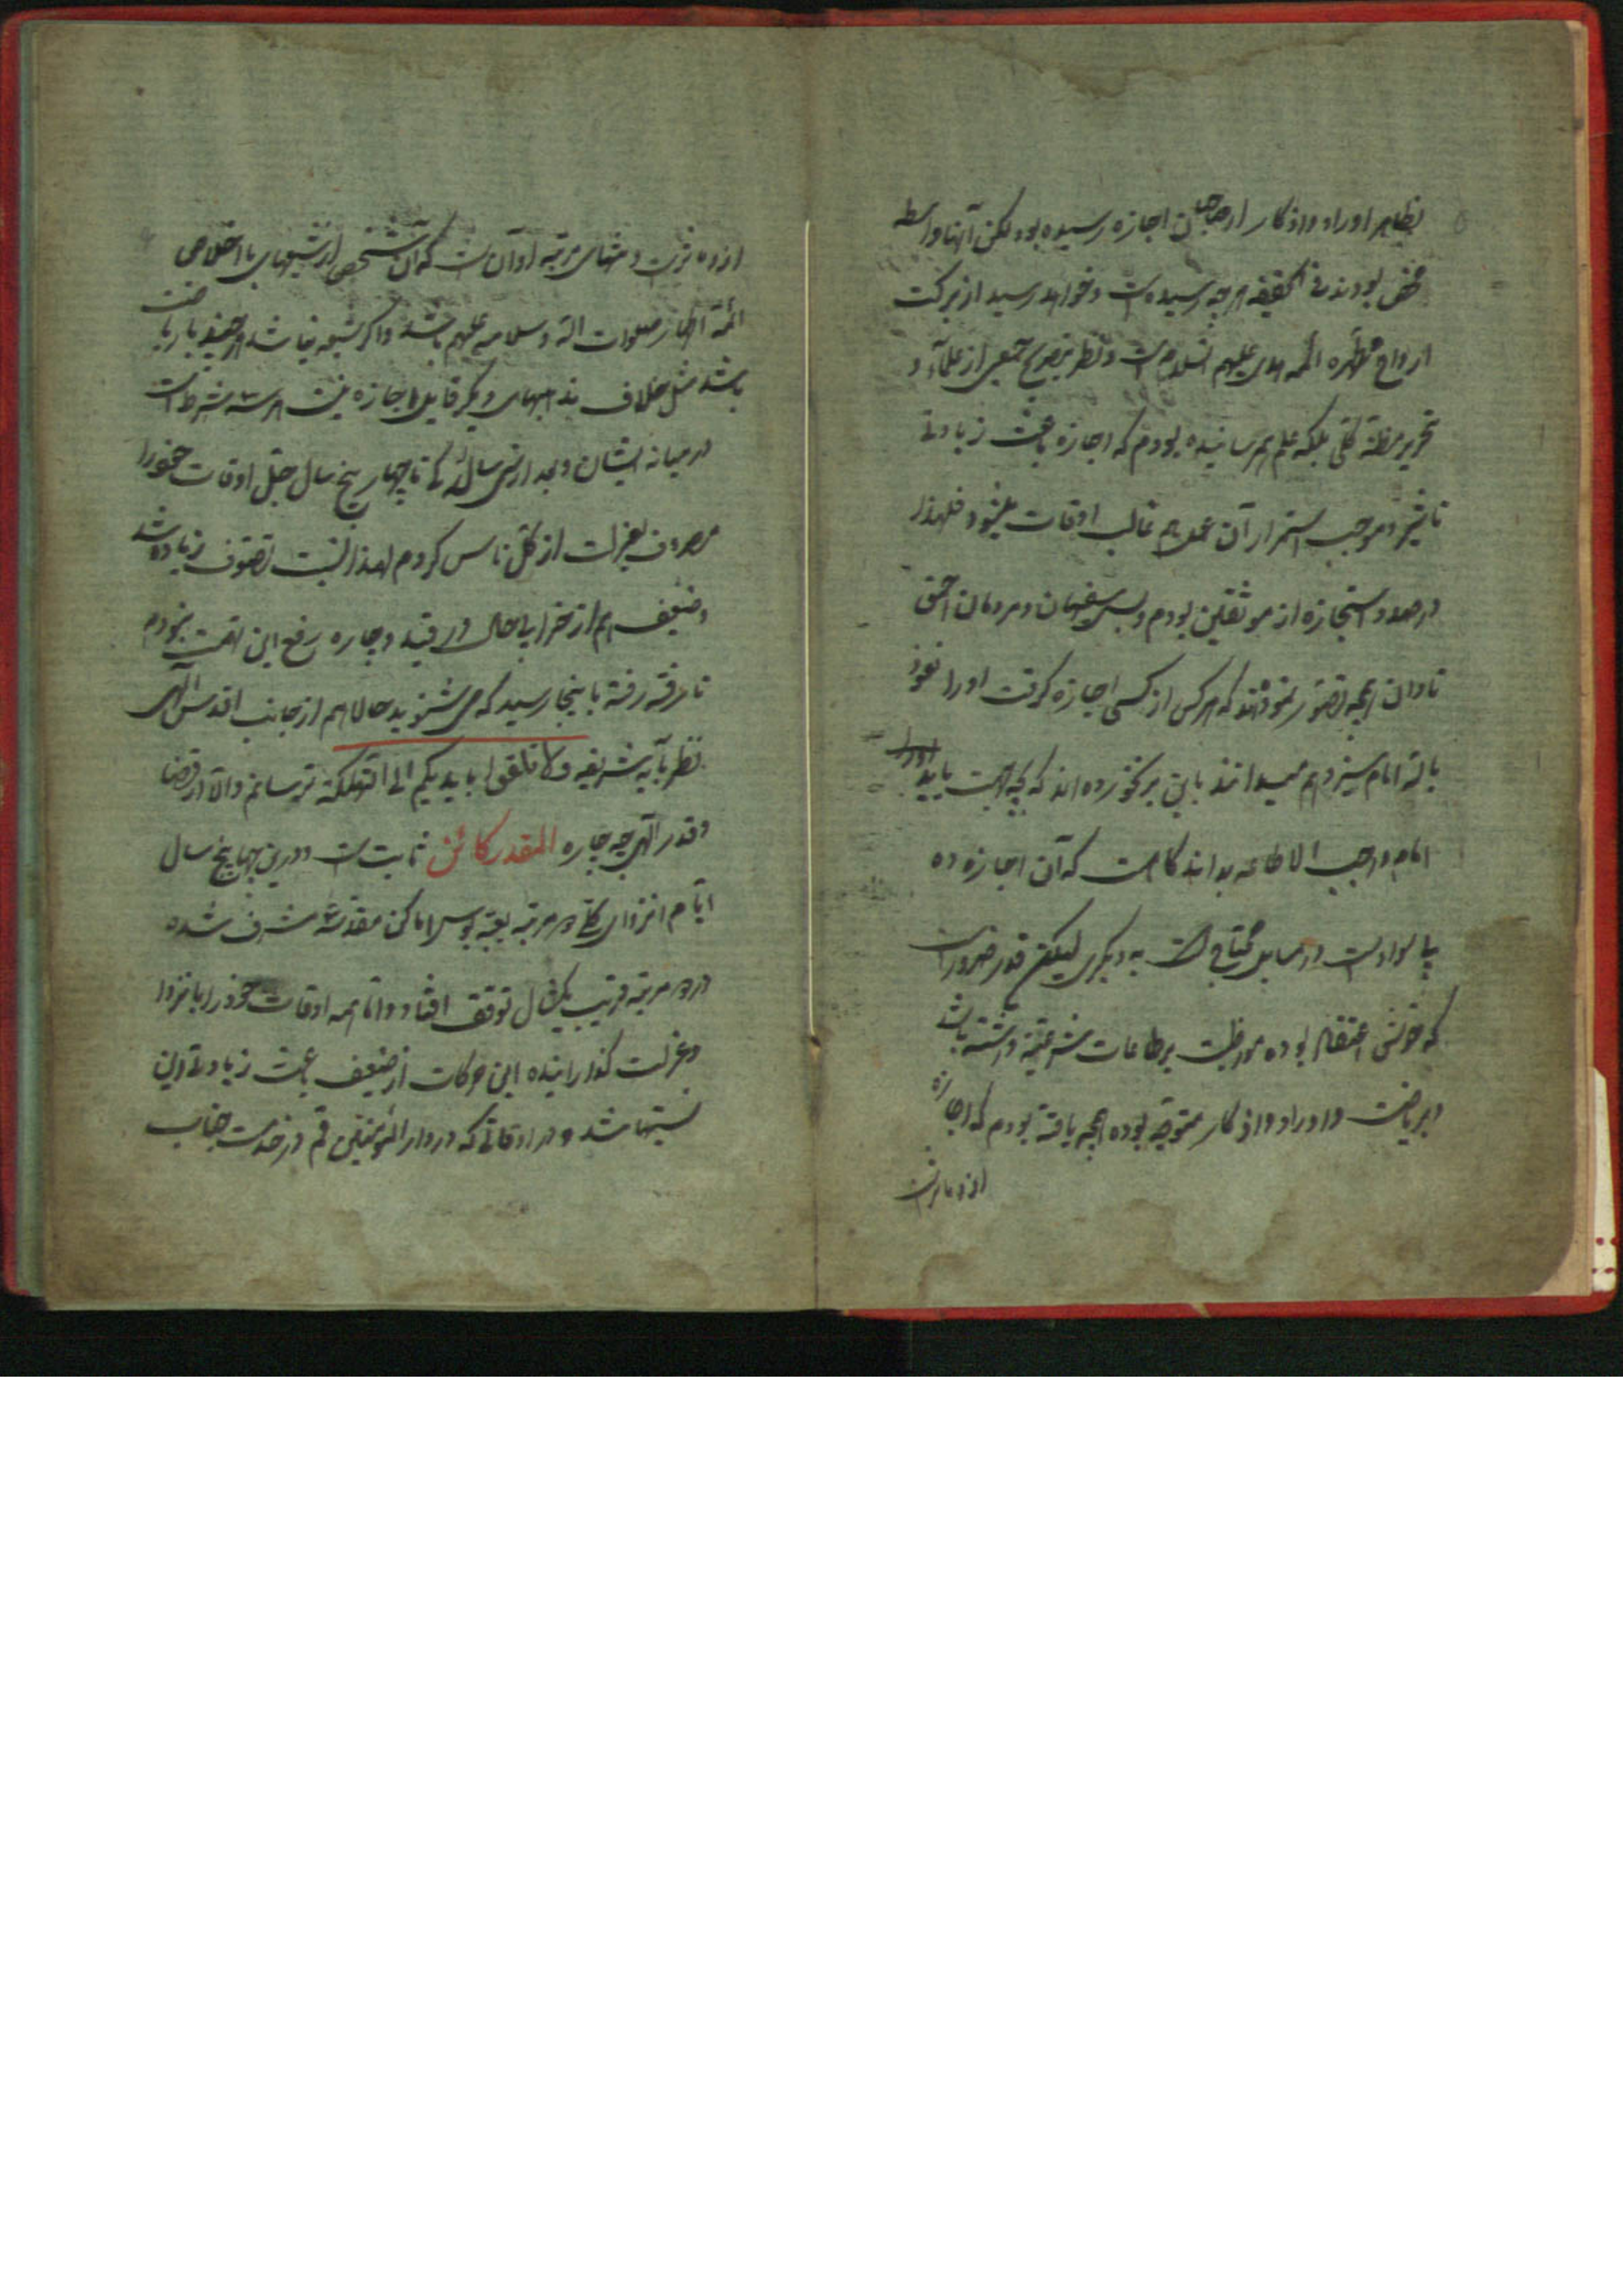 بظاهر اوراد و اذکار از صاحبان اجازه رسیده بود لکن آنها واسطه
محض بودند فی الحقیقه هرچه رسیده است و خواهد رسید از برکت
ارواح مطهره ائمه هدی علیهم السلام است و نظر بتصریح جمعی از علماء و
تحریر بلکه علم بهم رسانیده بودم که اجازه باعث زیادتی
تاثیر و موجب استمرار آن عمل هم غالب اوقات میشود فلهذا
در صدد استجازه از موثقین بودم و بس سفیهان و مردمان احمق
نادان همچه تصور نمودند که هر کس از کسی اجازه گرفت او را نعوذ
بالله امام سیزدهم میدانند باین بر نخورده اند که چه جهت باید
امام واجب الاطاعه بداند گاهست که آن اجازه ده
بیسوادست در مسایل محتاج است به دیگری لیکن قدر ضرور است
که خوش اعتقاد بوده مواظبت بر طاعات شرعیه داشته باشد
و بریاضت و اوراد و اذکار متوجه بوده همچه یافته بودم که اجازه
از ده مؤثر است
از ده مؤثر است و منتهای مرتبه او آن است که آن شخص از شیعهای با اخلاص
ائمه اطهار صلوات الله و سلامه علیهم باشد و اگر شیعه نباشد هر چند با ریاضت
باشد مثل خلاف مذهبهای دیگر قابل اجازه نیست
در میانه ایشان و بعد از سی سالگی تا چهار پنج سال جل اوقات خود را
مصروف بعزلت از کل ناس کردم لهذا نسبت تصوف زیاده شد
و ضعیف هم از خرابی حال در قید و چاره رفع این تهمت نبودم
تا رفته رفته باینجا رسید که می شنوید حالا هم از جانب اقدس الهی
نظر بآیه شریفه و لا تلقوا بایدیکم الی التهلکة ترسانم والا از قضا
و قدر الهی چه چاره المقدر کائن ثابت است و درین چهار پنج سال
ایام انزوای کلی دو مرتبه بعتبه بوسی اماکن مقدسه مشرف شده
در دو مرتبه قریب یکسال توقف افتاد و اما همه اوقات خود را بانزوا
و عزلت گذرانیده این حرکات از ضعیف باعث زیادتی این
نسبتها شد و در اوقاتی که در دار المؤمنین قم در خدمت جناب